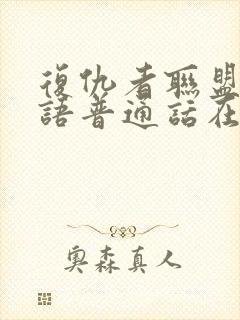 復仇者聯盟
語普通話在
奧森真人